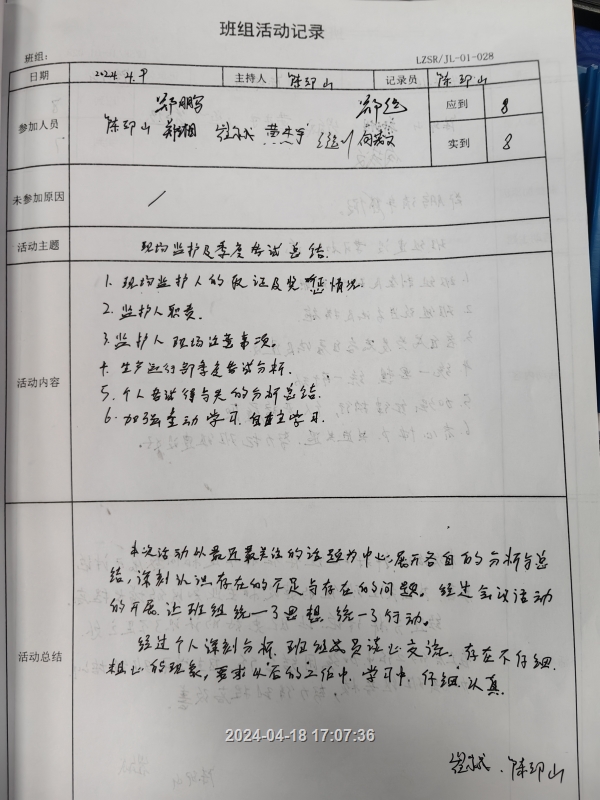 班组活动记录
班组: LZSR/JL-01-028
日期 2024.4.9 主持人 陈邵山 记录员 陈邵山
参加人员 应到 8
实到 8
未参加原因 /
活动主题 现场监护及季度考试总结.
活动内容
1. 现场监护人的取证及奖惩情况.
2. 监护人职责.
3. 监护人现场注意事项。
4. 生产运行部季度考试分析.
5. 个人考试得与失的分析总结.
6. 加强主动学习.自主学习.
活动总结
本次活动以最近最关注的话题为中心展开各自的分析与总
结,深刻认识存在的不足与存在的问题。经过会议活动
的开展让班组统一了思想统一了行动。
经过个人深刻分析.班组成员谈心交流.存在不仔细.
粗心的现象,要求以后的工作中.学习中.仔细.认真.
陈邵山
2024-04-18 17:07:36